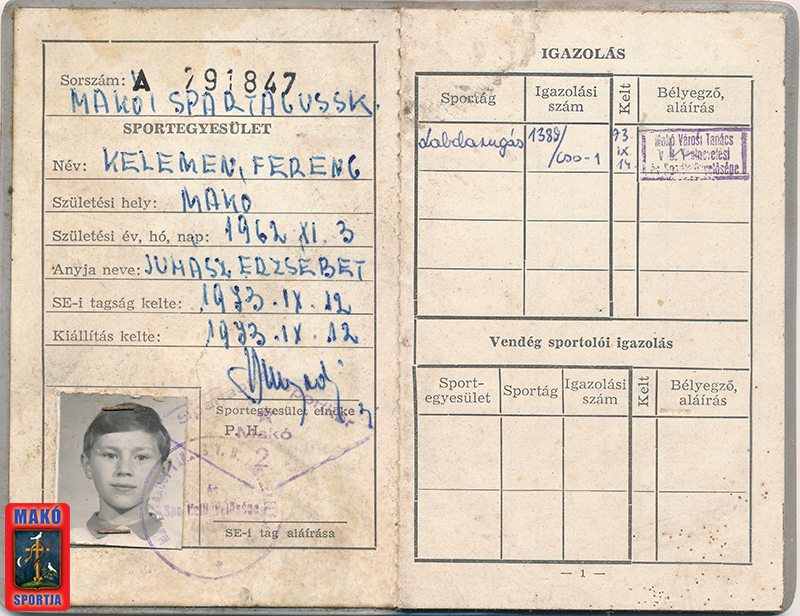 Sorszám: A 791847
MAKÓI SPARTACUS SK.
SPORTEGYESÜLET
Név: KELEMEN, FERENC
Születési hely: MAKÓ
Születési év, hó, nap: 1962 XI. 3
Anyja neve: JUHÁSZ, ERZSÉBET
SE-i tagság kelte: 1973. IX. 12
Kiállítás kelte: 1973. IX. 12
Sportegyesület elnöke
P. H.
Makó
2
és
SE-i tag aláírása
MAKÓ
SPORTJA
IGAZOLÁS
Sportág
Igazolási szám
Kelt
Bélyegző, aláírás
Labdarúgás
1389/
/000-1
73
IX
14
Makó Városi Tanács
V. B.
és Sport
Vendég sportolói igazolás
Sport-egyesület
Sportág
Igazolási szám
Kelt
Bélyegző, aláírás
— 1 —